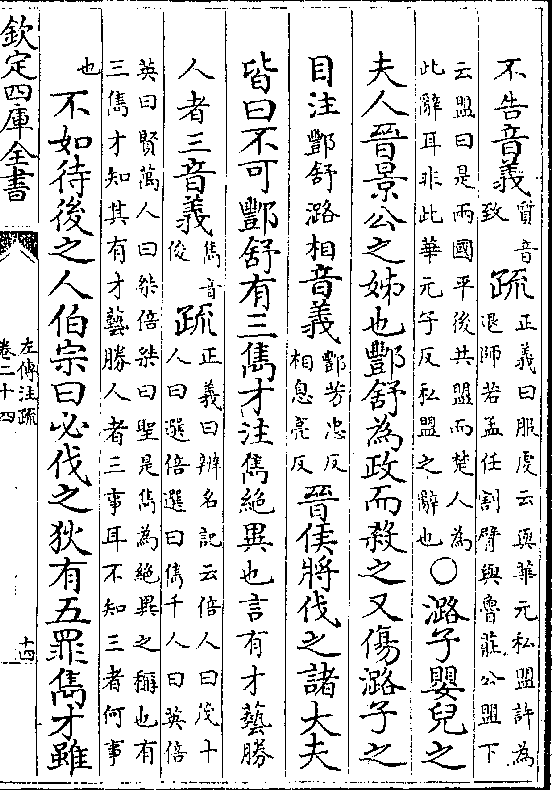 不告音義質音致疏正義曰服虔云與華元私盟許為退師若孟任割臂與魯莊公盟下
云盟曰是兩國平後共盟而楚人為此辭耳非此華元子反私盟之辭也○潞子嬰兒之
夫人晉景公之姊也酆舒為政而殺之又傷潞子之
目注酆舒潞相音義酆芳忠反相息亮反晉侯將伐之諸大夫
皆曰不可酆舒有三儁才注儁絕異也言有才藝勝
人者三音義儁音俊疏正義曰辨名記云倍人曰茂十人曰選倍選曰儁千人曰英倍
英曰賢萬人曰桀倍桀曰聖是儁為絕異之稱也有三儁才知其有才藝勝人者三事耳不知三者何事
也不如待後之人伯宗曰必伐之狄有五罪儁才雖
欽定四庫全書
左傳注疏
卷二十四
十四